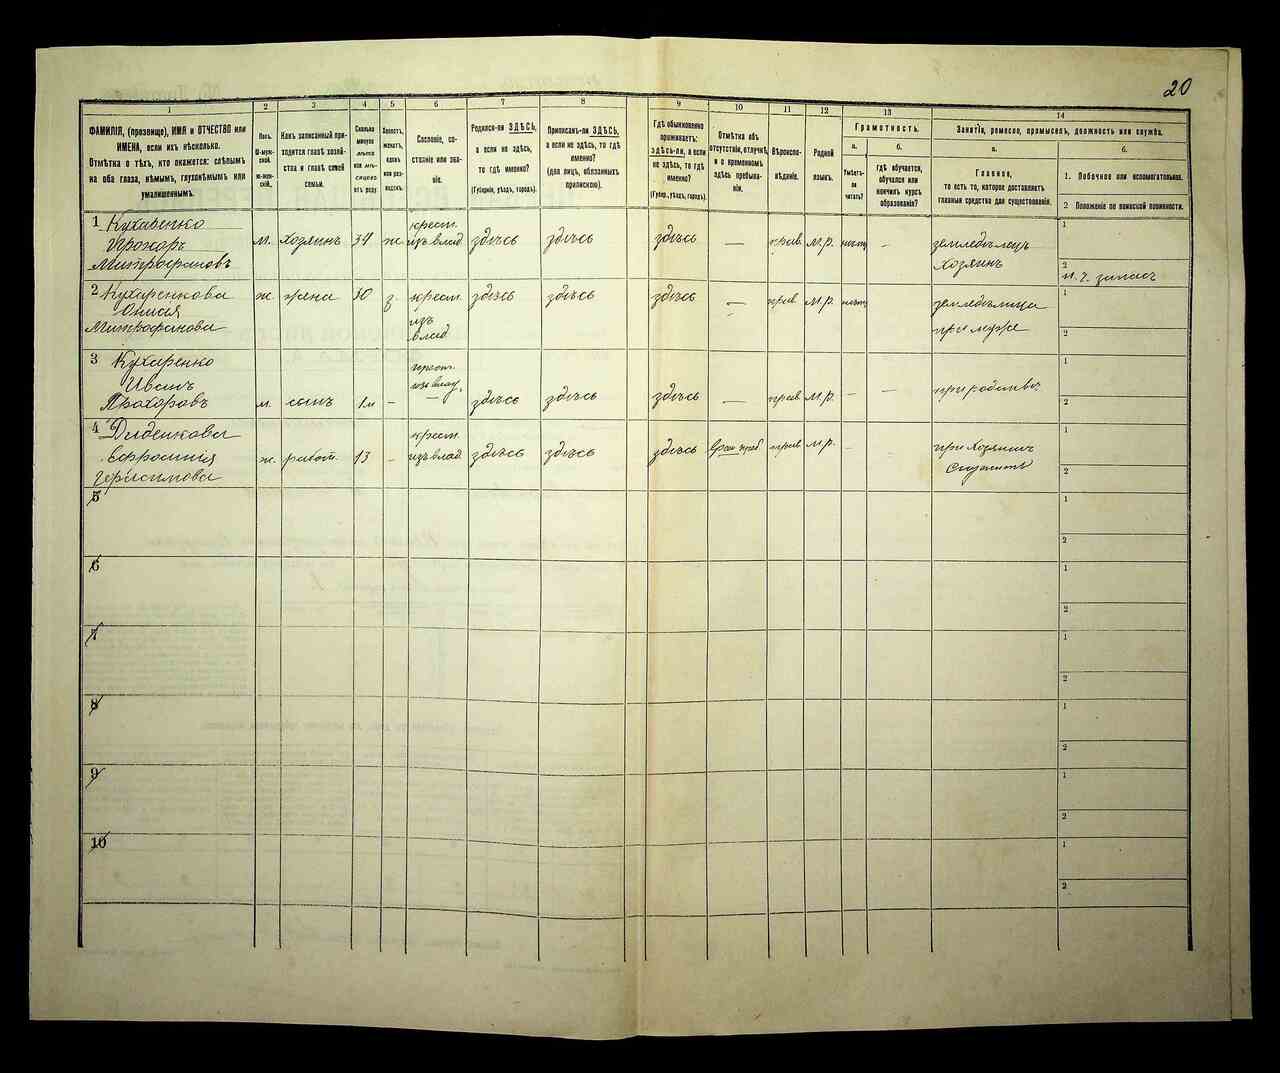 20
1
2
3
4
5
6
7
8
9
10
11
12
13
14
ФАМИЛІЯ, (прозвище), ИМЯ и ОТЧЕСТВО или
ИМЕНА, если ихъ нѣсколько.
Отмѣтка о тѣхъ, кто окажется: слѣпымъ
на оба глаза, нѣмымъ, глухонѣмымъ или
умалишеннымъ.
Полъ.
М-муж-
ской.
Ж-жен-
скій.
Какъ записанный при-
ходится главѣ хозяй-
ства и главѣ своей
семьи.
Сколько
минуло
лѣтъ
или мѣ-
сяцевъ
отъ роду
Холостъ,
женатъ,
вдовъ
или раз-
веденъ.
Сословіе, со-
стояніе или зва-
ніе.
Родился-ли ЗДѢСЬ,
а если не здѣсь,
то гдѣ именно?
(Губернія, уѣздъ, городъ).
Приписанъ-ли ЗДѢСЬ,
а если не здѣсь, то гдѣ
именно?
(для лицъ, обязанныхъ
припискою).
Гдѣ обыкновенно
проживаетъ:
ЗДѢСЬ-ли, а если
не здѣсь, то гдѣ
именно?
(Губер., уѣздъ, городъ).
Отмѣтка объ
отсутствіи, отлучкѣ
и о временномъ
здѣсь пребыва-
ніи.
Вѣроиспо-
вѣданіе.
Родной
языкъ.
Грамотность.
а.
Умѣетъ-
ли
читать?
б.
гдѣ обучается,
обучался или
кончилъ курсъ
образованія?
Занятіе, ремесло, промыселъ, должность или служба.
а.
Главное,
то есть то, которое доставляетъ
главныя средства для существованія.
б.
1. Побочное или вспомогательное.
2 Положеніе по воинской повинности.
1 Кухаренко
Прохоръ
Митрофановъ
м. хозяинъ 34 ж крест. изъ влад здѣсь здѣсь здѣсь — прав. м.р. нѣтъ -
земледѣлецъ
хозяинъ
1
2
н. ч. запасъ
2 Кухаренкова
Митрофанова
ж. жена 30 з. крест. изъ влад здѣсь здѣсь здѣсь — прав м.р нѣтъ
земледѣлица
при мужѣ
1
2
3 Кухаренко
Иванъ
Прохоровъ
м. сынъ 1м - крест. изъ влад. здѣсь здѣсь здѣсь — прав м.р. — —
при родител.
1
2
4 Диденкова
Ефросинія
Герасимова
ж. работ. 13 - крест. изъ влад. здѣсь здѣсь здѣсь прав м.р. -
при хозяинѣ
1
2
5
1
2
6
1
2
7
1
2
8
1
2
9
1
2
10
1
2